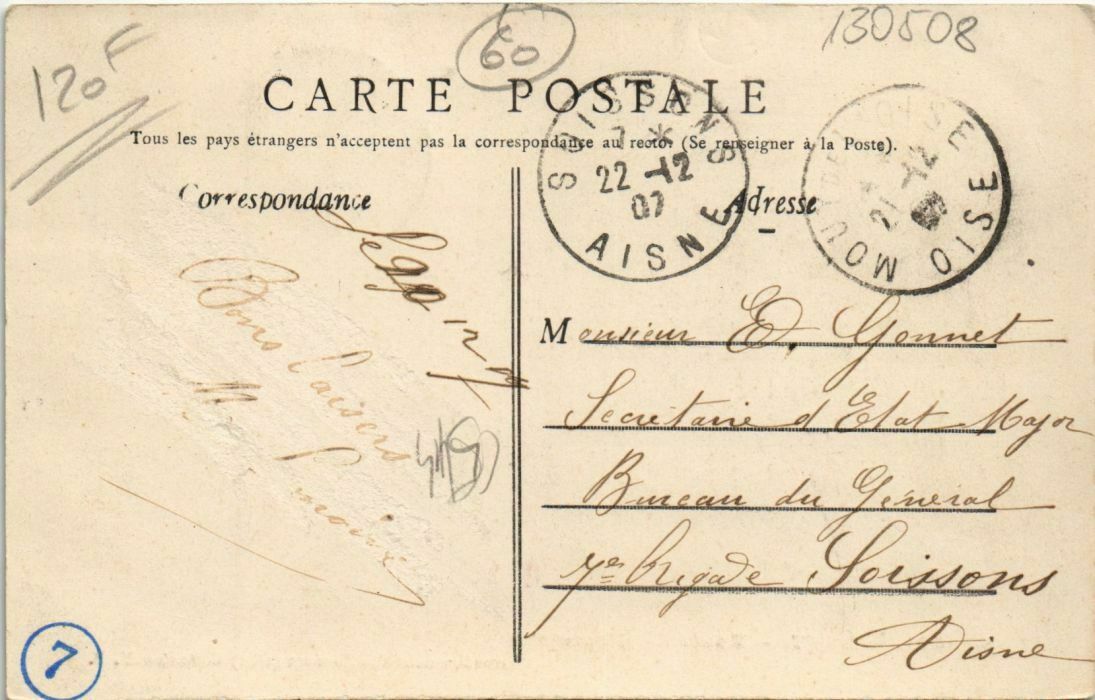 120F
60
130508
CARTE POSTALE
Tous les pays étrangers n'acceptent pas la correspondance au recto. (Se renseigner à la Poste).
SOISSONS
7 *
22 -12
07
AISNE
OISE
21 -12
MOUY OISE
Correspondance
Adresse
Le 12
Bons baisers
M
Monsieur E. Gonnet
Secrétaire d'Etat Major
Bureau du Général
7e brigade Soissons
Aisne
7